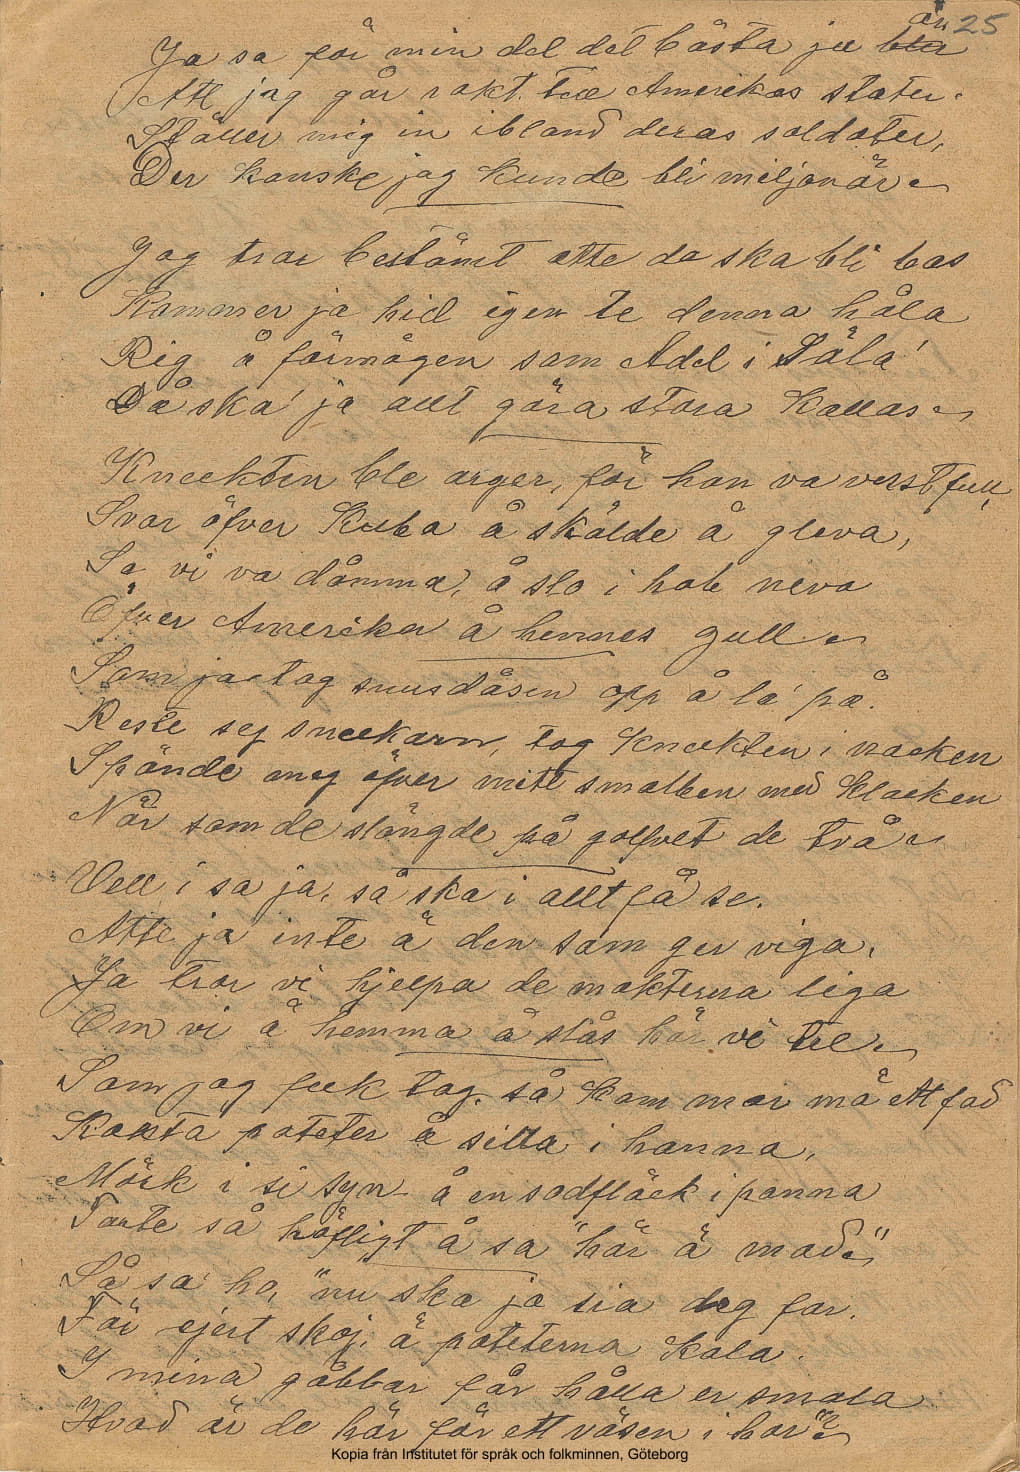 än 25
Ja sa för min del det bästa je blir
Att jag går rakt till Amerikas stater.
Ställer mig in ibland deras soldater,
Der kanske jag kunde bli miljonär
Jag tror bestämt atte de ska bli bas
Kommer ja hid igen te denna håla
Rig å förmögen som Adel i Såla
Då ska' ja allt göra stora Kallas
Kneckten ble arger, för han va verst full,
Svor öfver Kuba å skälde å gleva,
Sa vi va dämma, å slo i hob neva
Öfver Amerika å hennes gull
Som ja tog snusdåsen opp å la' på.
Reste sej sneekarn, tog Kneckten i nacken
Spände meg öfver mitt smalben med Klacken
När som de slängde på golfvet de två
Vell i sa ja, så ska i allt få se.
Atte ja inte ä den som ger viga.
Ja tror vi hjelpa de makterna liga
Om vi ä hemma å slås här vé tel
Som jag feck tag så kom mor må ett fad
Kokta poteter å silla i hanna,
Mörk i si syn å en sodfläck i panna
Tante så höfligt å sa "här ä mad"
Så sa' ho, "nu ska ja sia deg far,
För ejert skoj, ä poteterna Kala.
I mina gåbbar får hålla er smala
Hvad är de här för ett väsen i har"?
Kopia från Institutet för språk och folkminnen, Göteborg